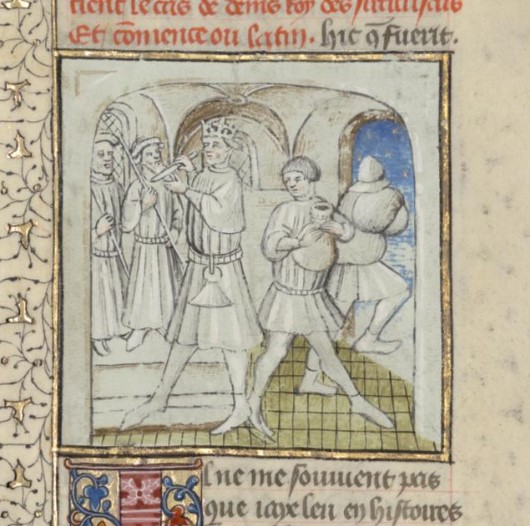 tient le cas de denis Roy des siracusais
Et cōmence ou latin. hic q̄ fuerit.
Il ne me souuient pas
que iaye leu en histoires